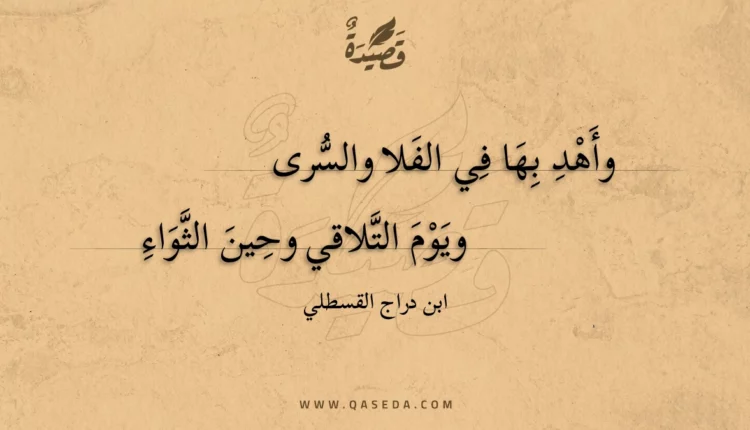 قَصِيْدَةٌ
وأَهْدِ بِهَا فِي الفَلا والسُّرى
ويَوْمَ التَّلاقي وحِينَ الثَّوَاءِ
ابن دراج القسطلي
WWW.QASEDA.COM